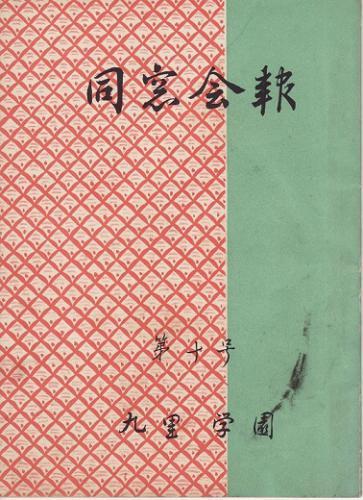 同窓会報
第十号
九里学園